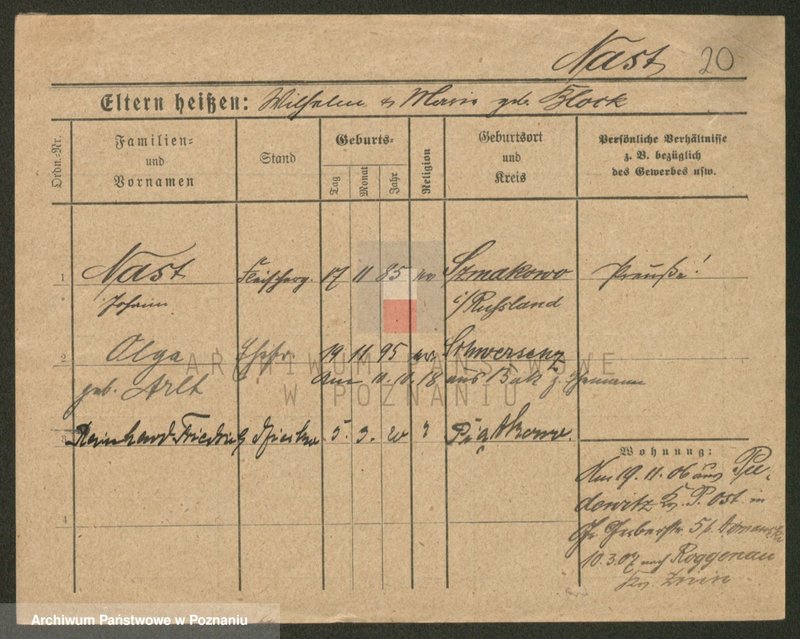 Nast 20
Eltern heißen: Wilhelm u Marie geb. Block
Ordn.-Nr.
Familien- und Vornamen
Stand
Geburts-
Tag Monat Jahr
Religion
Geburtsort und Kreis
Persönliche Verhältnisse
z. B. bezüglich
des Gewerbes usw.
1 Nast Fleischerg. 17 11 85 ev Szmakowo Preuße!
Johann i/Russland
2 Olga Ehefr. 19 11 95 ev Schwersenz
geb. Arlt Am 10.10.18 aus Buk z. Ehemann
3 Reinhard Friedrich 5. 3. 20 Piątkowo.
4
Wohnung:
Am 19.11.06 aus
dewitz Kr. P. Ost. in
Gr. Gerberstr. 51.
10.3.07 nach Roggenau
Kr. Znin
ARCHIWUM PAŃSTWOWE
W POZNANIU
Archiwum Państwowe w Poznaniu